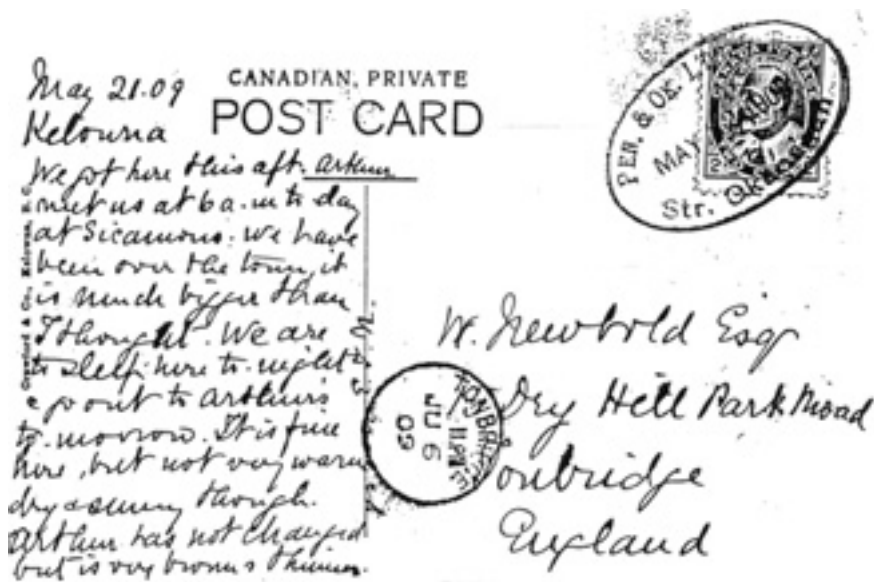 May 21.09
Kelowna
CANADIAN, PRIVATE
POST CARD
We got here this aft. Arthur
met us at 6 a.m to day
at Sicamous. We have
been over the town, it
is much bigger than
I thought. We are
to sleep here to-night
& go out to Arthur's
to-morrow. It is fine
here, but not very warm
dry & sunny though.
Arthur has not changed
but is very brown & thinner.
Crawford & Co., Kelowna, B.C.
PEN. & OK.
MAY
Str. Okanagan
TONBRIDGE
JU 6
09
W. Newbold Esq
Dry Hill Park Road
Tonbridge
England